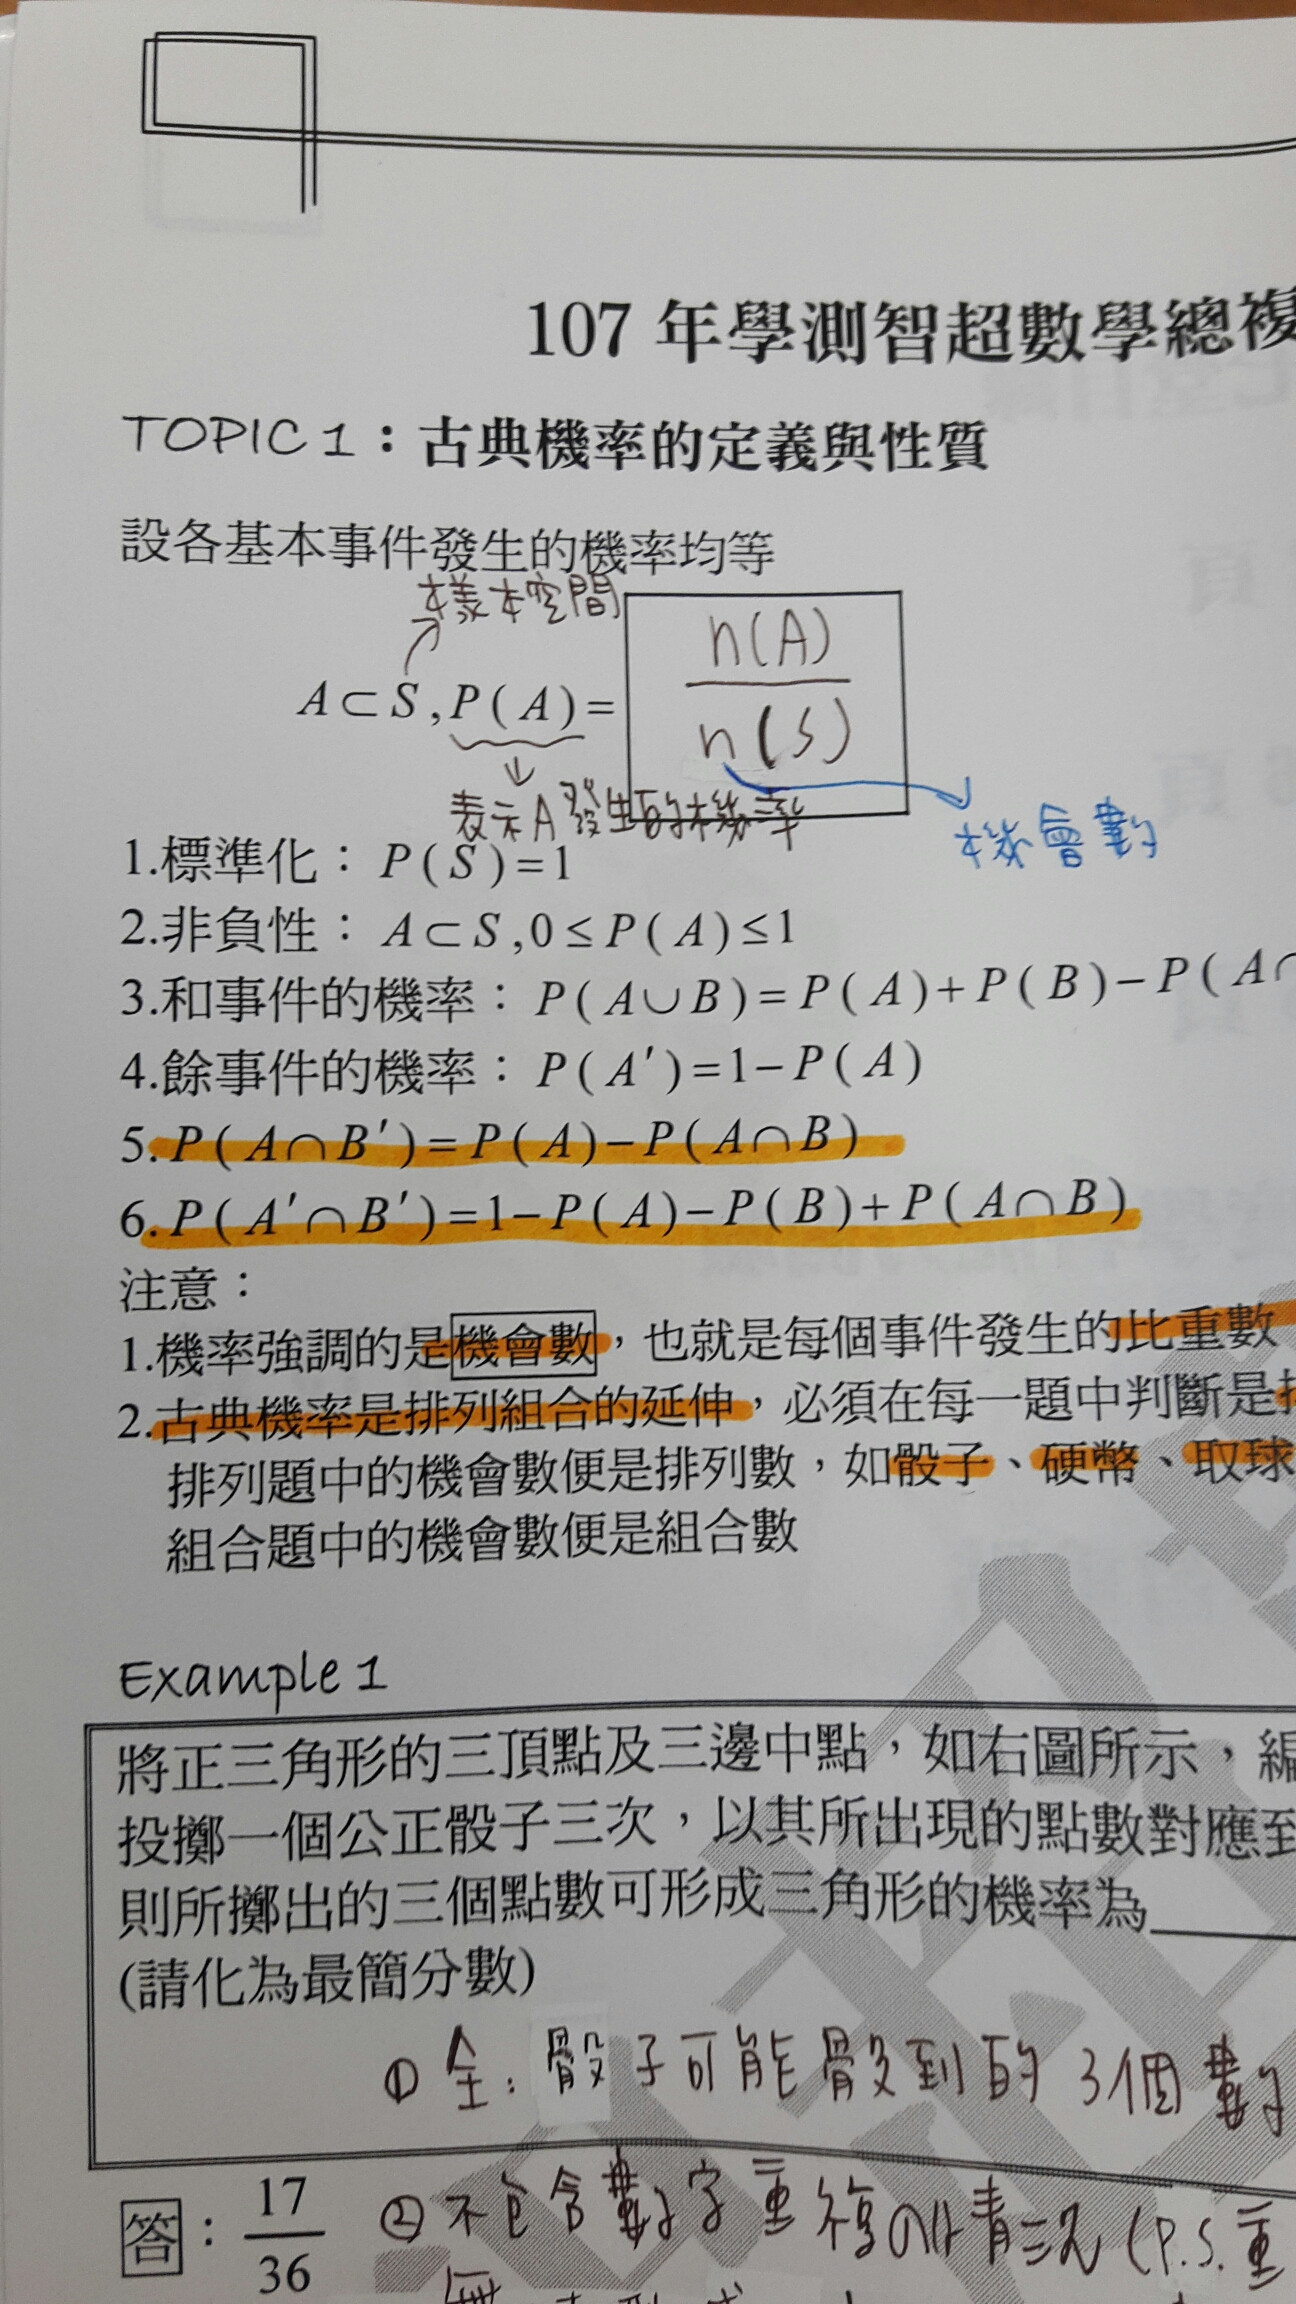 107 年學測智超數學總複
TOPIC 1：古典機率的定義與性質
設各基本事件發生的機率均等
樣本空間
A⊂S,P(A)= n(A)/n(S)
表示A發生的機率
機會數
1.標準化：P(S)=1
2.非負性：A⊂S,0≤P(A)≤1
3.和事件的機率：P(A∪B)=P(A)+P(B)−P(A∩
4.餘事件的機率：P(A′)=1−P(A)
5.P(A∩B′)=P(A)−P(A∩B)
6.P(A′∩B′)=1−P(A)−P(B)+P(A∩B)
注意：
1.機率強調的是機會數，也就是每個事件發生的比重數
2.古典機率是排列組合的延伸，必須在每一題中判斷是
排列題中的機會數便是排列數，如骰子、硬幣、取球
組合題中的機會數便是組合數
Example 1
將正三角形的三頂點及三邊中點，如右圖所示，編
投擲一個公正骰子三次，以其所出現的點數對應到
則所擲出的三個點數可形成三角形的機率為
(請化為最簡分數)
① 全：骰子可能骰到的3個數
答：17/36
② 不包含數字重複的情況 (P.S.重